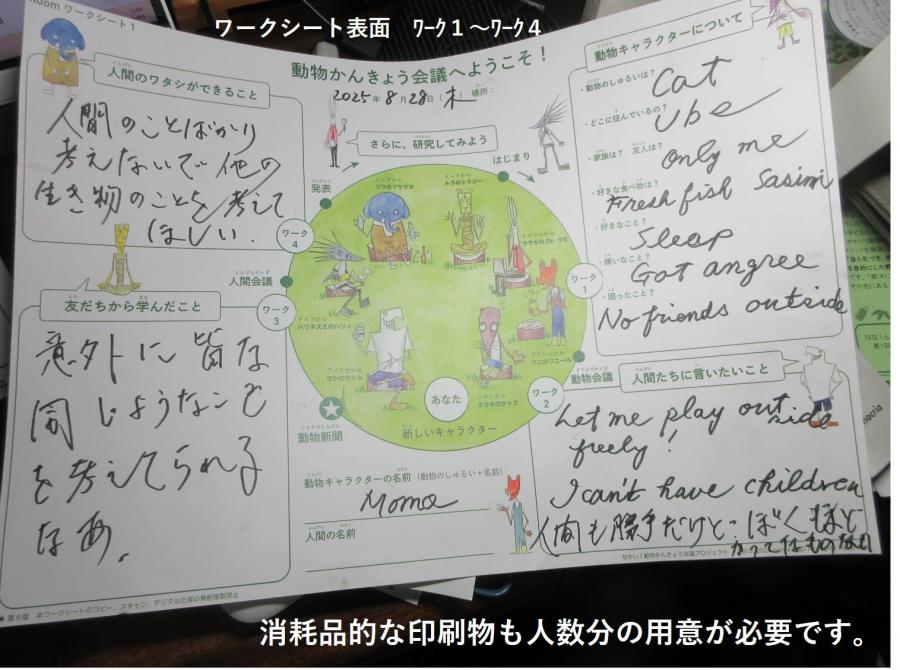 ワークシート表面　ﾜｰｸ１～ﾜｰｸ４
Room ワークシート 1
動物かんきょう会議へようこそ！
2025年8月28日（木 場所：
人間のワタシができること
人間のことばかり
考えないで他の
生き物のことを考えて
ほしい.
さらに、研究してみよう
発表
はじまり
ワーク
4
人間会議
ワーク
3
友だちから学んだこと
意外に皆な
同じようなこと
を考えてられる
なあ。
ゾウのゾウママ
トラのトラジー
ウサギの Dr. ラビ
ハリネズミのハリィ
ワシのワッシ
タヌキのタック
ワニのワニール
あなた
新しいキャラクター
動物新聞
動物キャラクターの名前（動物のしゅるい＋名前）
Momo
人間の名前
動物キャラクターについて
・動物のしゅるいは？
Cat
・どこに住んでいるの？
Ube
・家族は？ 友人は？
Only me
・好きな食べ物は？
Fresh fish Sasimi
・好きなこと？
Sleep
・嫌いなこと？
Got angree
・困ったこと？
No friends outside
ワーク
1
動物会議
ワーク
2
人間たちに言いたいこと
Let me play outside
freely!
I can't have children
人間も勝手だけど、ぼくもほど
かってなものなり
せかい！動物かんきょう会議プロジェクト
第6版 本ワークシートのコピー、スキャン、デジタル化等の無断複製禁止
消耗品的な印刷物も人数分の用意が必要です。